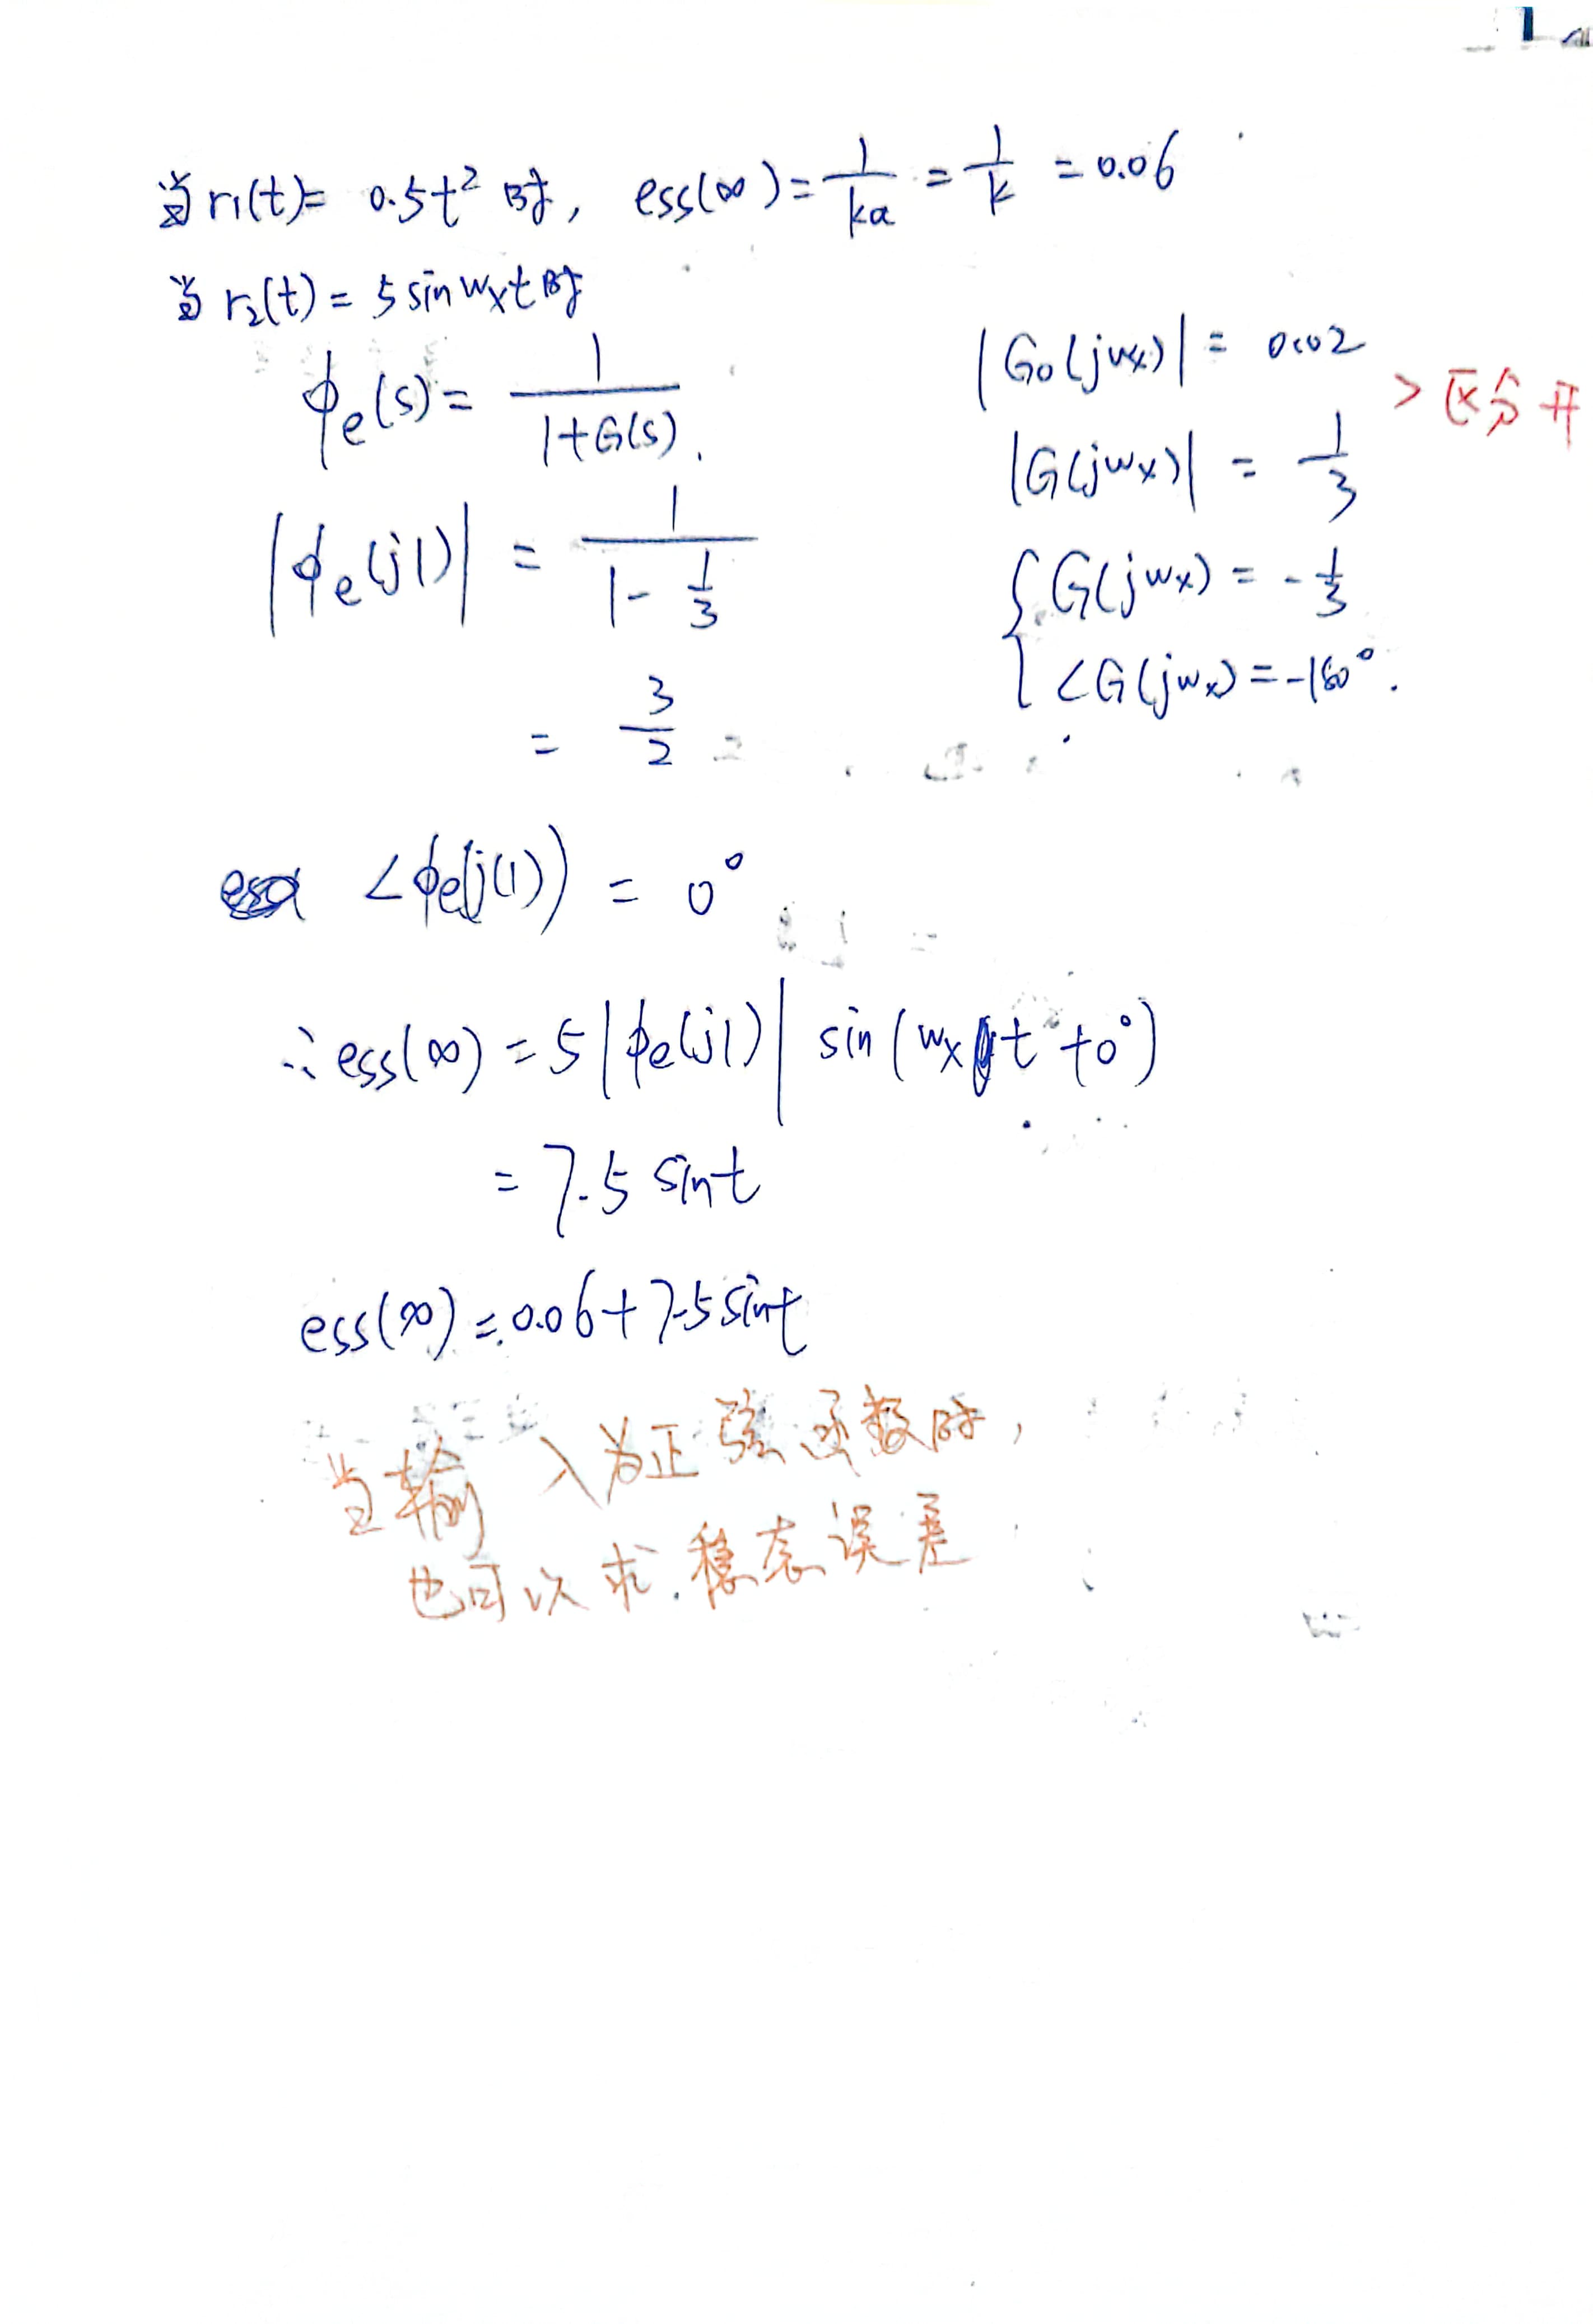 当 r₁(t)= 0.5t² 时, ess(∞)= 1/ka = 1/k = 0.06
当 r₂(t) = 5 sin wₓt 时
ϕe(s) = 1/(1+G(s)).
|ϕe(j1)| = 1/(1-1/3)
= 3/2
|G₀(jwₓ)| = 0.02
> 区分开
|G(jwₓ)| = 1/3
{ G(jwₓ) = -1/3
∠G(jwₓ) = -180°.
∠ϕe(j(1)) = 0°
∴ ess(∞) = 5 |ϕe(j1)| sin (wₓt +0°)
= 7.5 sint
ess(∞) = 0.06+7.5 sint
当输入为正弦函数时,
也可以求.稳态误差